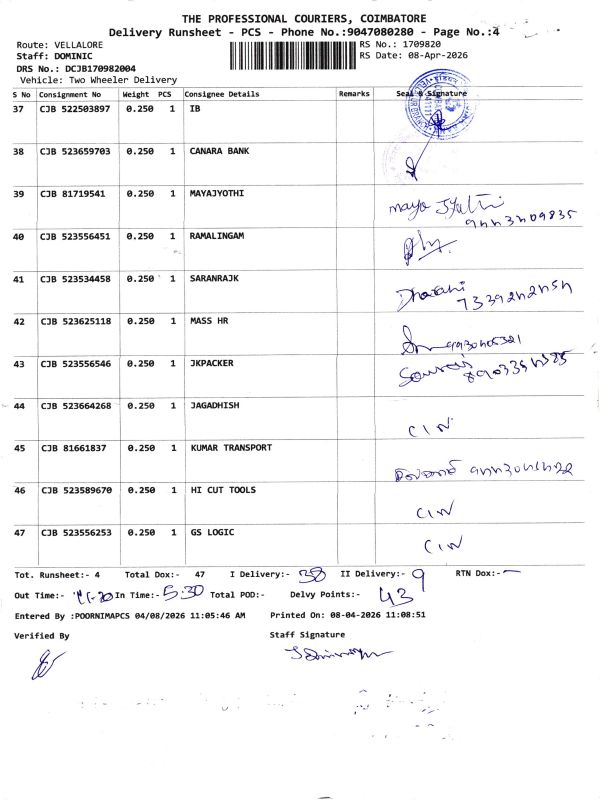 THE PROFESSIONAL COURIERS, COIMBATORE
Delivery Runsheet - PCS - Phone No.:9047080280 - Page No.:4
Route: VELLALORE RS No.: 1709820
Staff: DOMINIC RS Date: 08-Apr-2026
DRS No.: DCJB170982004
Vehicle: Two Wheeler Delivery
S No Consignment No Weight PCS Consignee Details Remarks Seal & Signature
37 CJB 522503897 0.250 1 IB
38 CJB 523659703 0.250 1 CANARA BANK
39 CJB 81719541 0.250 1 MAYAJYOTHI
maya Jyothi
40 CJB 523556451 0.250 1 RAMALINGAM
41 CJB 523534458 0.250 1 SARANRAJK
Dharani
42 CJB 523625118 0.250 1 MASS HR
43 CJB 523556546 0.250 1 JKPACKER
44 CJB 523664268 0.250 1 JAGADHISH
CIN
45 CJB 81661837 0.250 1 KUMAR TRANSPORT
46 CJB 523589670 0.250 1 HI CUT TOOLS
CIN
47 CJB 523556253 0.250 1 GS LOGIC
CIN
Tot. Runsheet:- 4 Total Dox:- 47 I Delivery:- 38 II Delivery:- 9 RTN Dox:- —
Out Time:- 11-20 In Time:- 5:30 Total POD:- Delvy Points:- 43
Entered By :POORNIMAPCS 04/08/2026 11:05:46 AM Printed On: 08-04-2026 11:08:51
Verified By Staff Signature